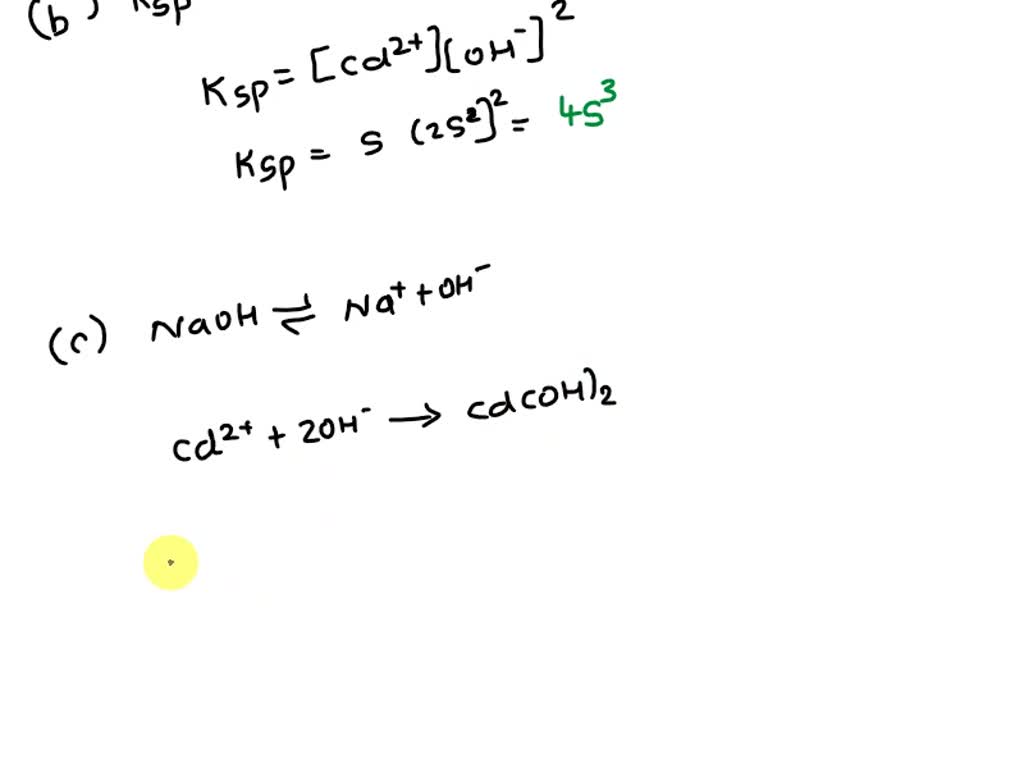 (b) Ksp
Ksp = [Cd²⁺][OH⁻]²
Ksp = S (2S²]² = 4S³
(c) NaOH ⇌ Na⁺ + OH⁻
Cd²⁺ + 2OH⁻ → Cd(OH)₂